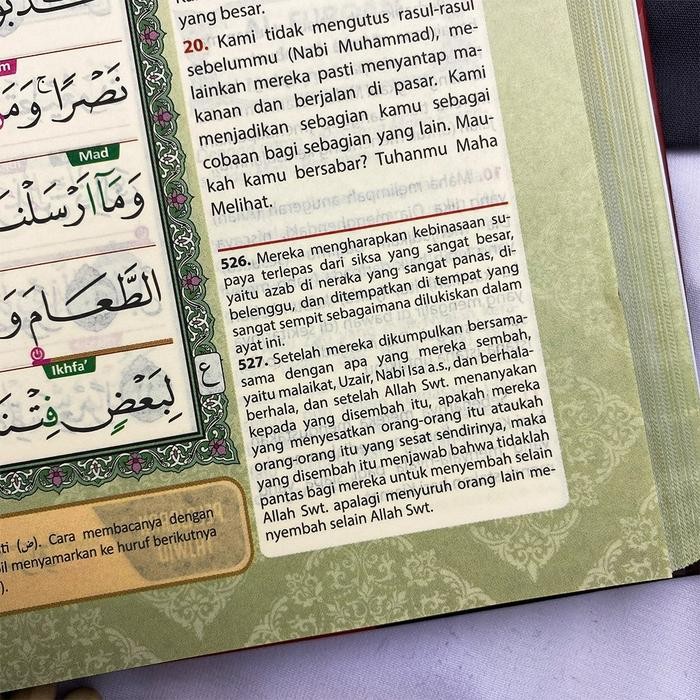 yang besar.
20. Kami tidak mengutus rasul-rasul
sebelummu (Nabi Muhammad), me-
lainkan mereka pasti menyantap ma-
kanan dan berjalan di pasar. Kami
menjadikan sebagian kamu sebagai
cobaan bagi sebagian yang lain. Mau-
kah kamu bersabar? Tuhanmu Maha
Melihat.
526. Mereka mengharapkan kebinasaan su-
paya terlepas dari siksa yang sangat besar,
yaitu azab di neraka yang sangat panas, di-
belenggu, dan ditempatkan di tempat yang
sangat sempit sebagaimana dilukiskan dalam
ayat ini.
527. Setelah mereka dikumpulkan bersama-
sama dengan apa yang mereka sembah,
yaitu malaikat, Uzair, Nabi Isa a.s., dan berhala-
berhala, dan setelah Allah Swt. menanyakan
kepada yang disembah itu, apakah mereka
yang menyesatkan orang-orang itu ataukah
orang-orang itu yang sesat sendirinya, maka
yang disembah itu menjawab bahwa tidaklah
pantas bagi mereka untuk menyembah selain
Allah Swt. apalagi menyuruh orang lain me-
nyembah selain Allah Swt.
نَصْرًاۚ
Mad
وَمَآ اَرْسَلْنَا
الطَّعَامَ وَ
Ikhfa'
لِبَعْضٍ فِتْنَ
ع
(ض). Cara membacanya dengan
menyamarkan ke huruf berikutnya